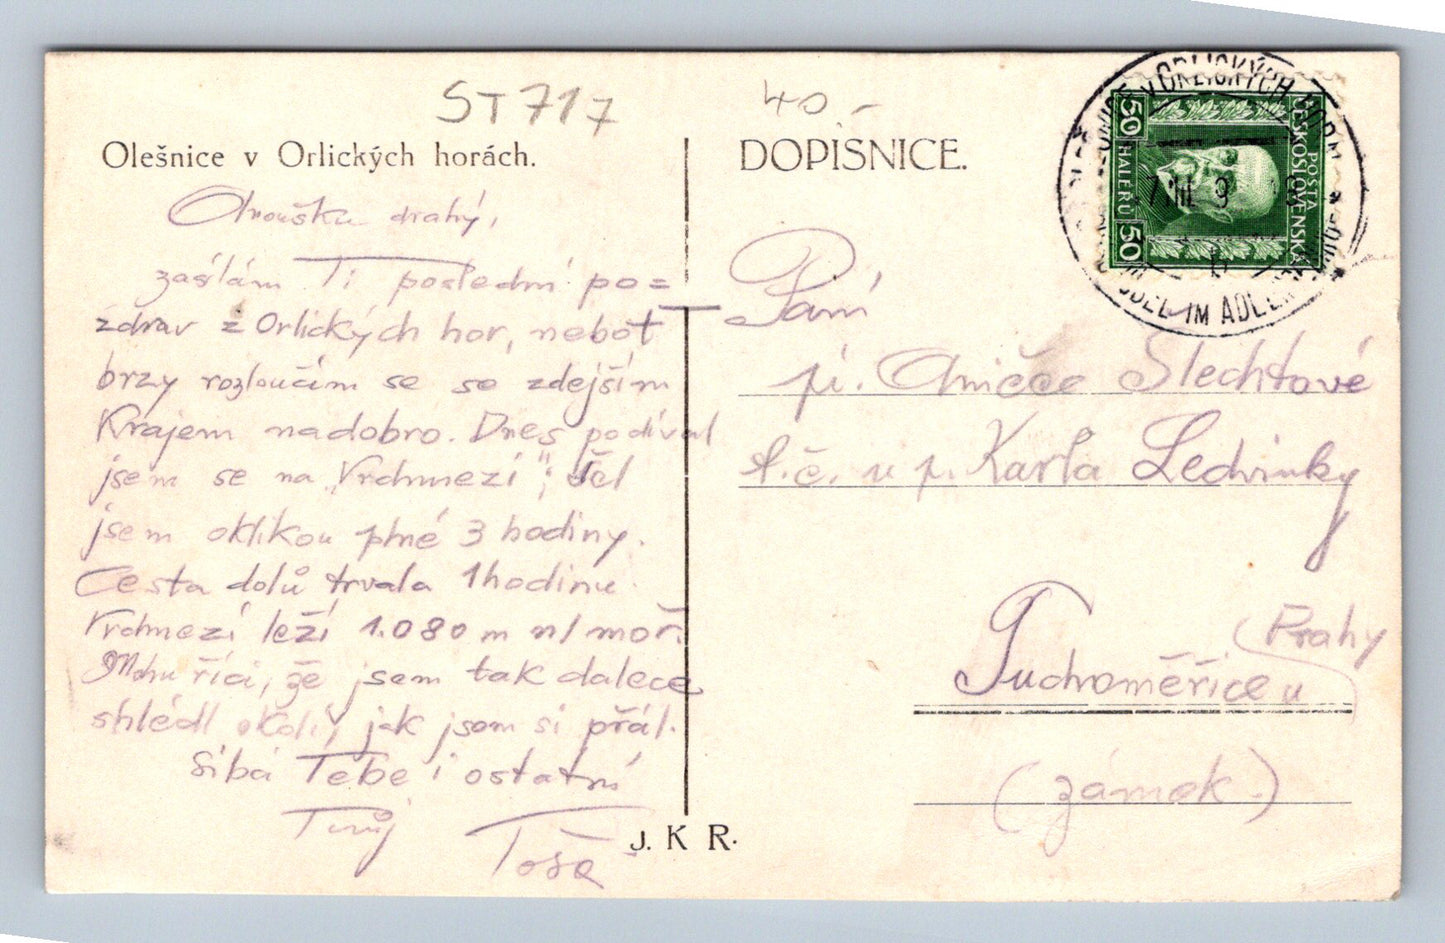 ST717
40.-
Olešnice v Orlických horách.
DOPISNICE.
drahý,
zasílám Ti poslední po=
zdrav z Orlických hor, neboť
brzy rozloučím se se zdejším
Krajem nadobro. Dnes podíval
jsem se na „Vrchmezí"; šel
jsem oklikou plné 3 hodiny.
Cesta dolů trvala 1 hodinu.
Vrchmezí leží 1.080 m n/moř.
Mohu říci, že jsem tak dalece
shlédl okolí, jak jsem si přál.
líbá Tebe i ostatní
Tvůj
Toša
J. K R.
POSTA
ČESKOSLOVENSKÁ
50 HALÉŘŮ 50
V ORLICKÝCH HOR
IM ADLER
7.III. 9
Paní
pí. Aničce Šlechtové
t.č. u p. Karla Ledvinky
Tuchoměřice u
Prahy
(zámek)